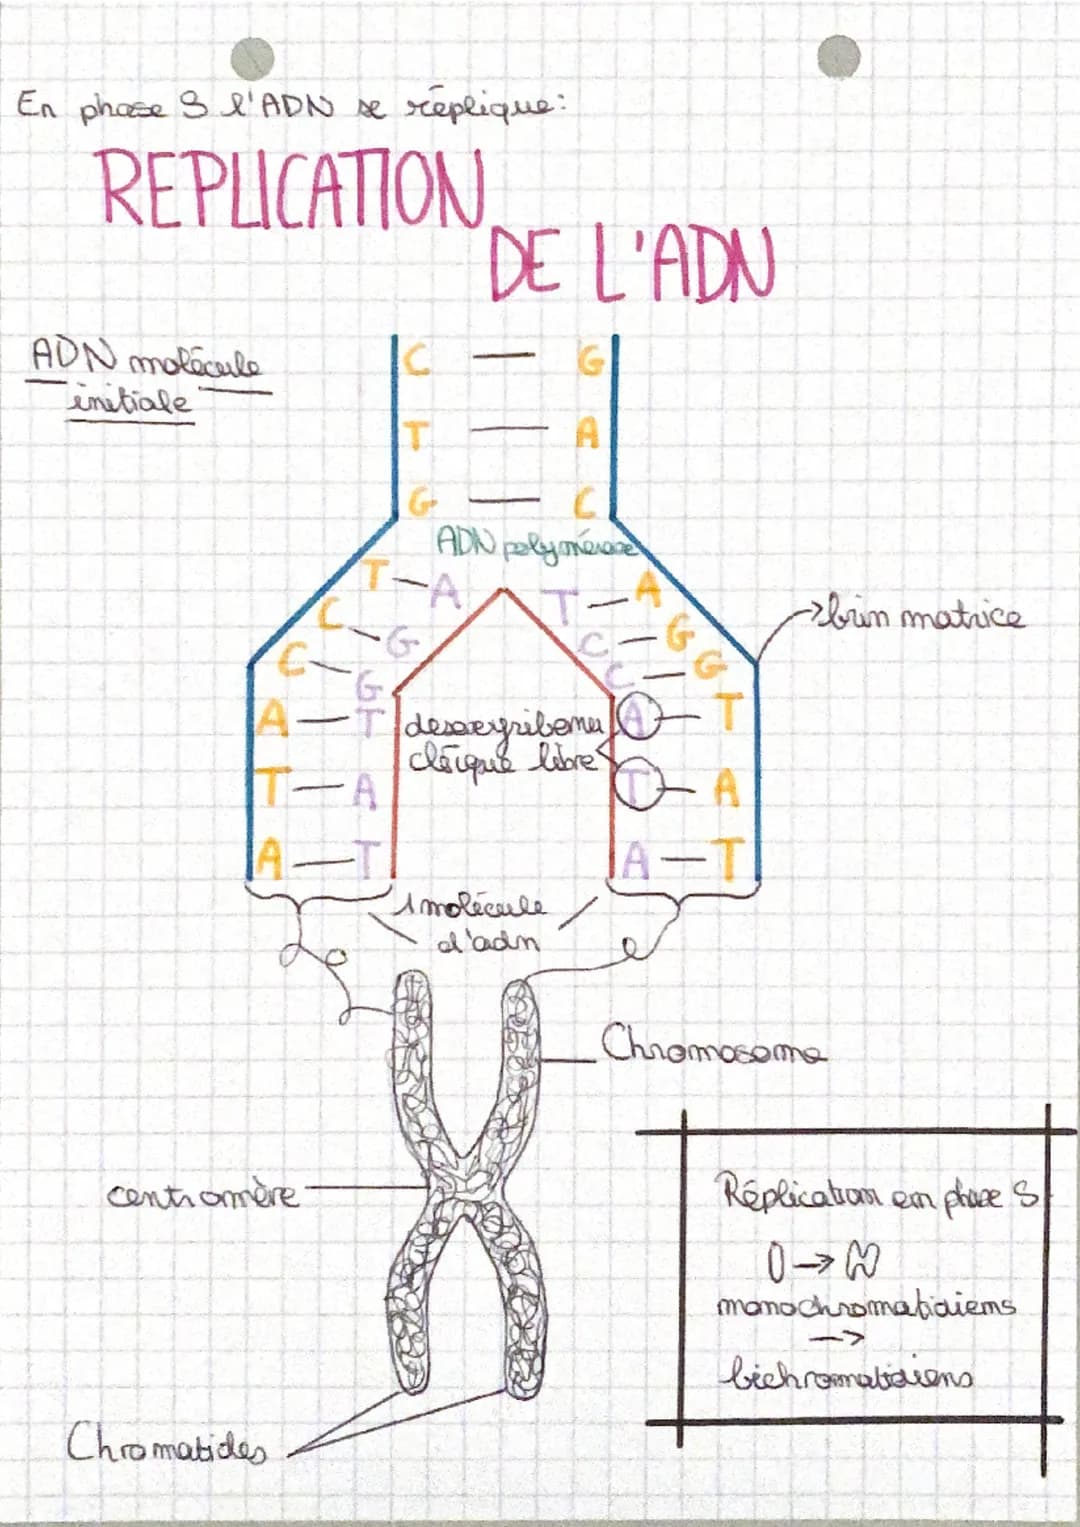 En phase S l'ADN se réplique:
REPLICATION
DE L'ADN
ADN molécule
initiale
C — G
T — A
G — C
ADN polymérase
T — A T — A
C — G C — G
C — G C — G
A — T A — T
T — A T — A
A — T A — T
→ brin matrice
desoxyribonu
cléique libre
1 molécule
d'adn
Chromosome
centromère
Chromatides
Réplication en phase S
monochromatidiens
→
bichromatidiens